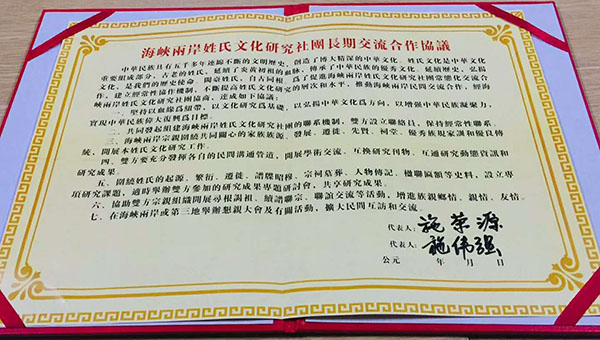 海峽兩岸姓氏文化研究社團長期交流合作協議
中華民族具有五千多年連綿不斷的文明歷史，創造了博大精深的中華文化。姓氏文化是中華文化
重要組成部分，古老的姓氏，延續了炎黃初祖的血脉，傳承了中華民族的優秀文化。延續歷史，弘揚
文化，是我們的歷史使命。閩臺姓氏，自古同根，爲了促進海峽兩岸姓氏文化研究社團常態化交流合
作，建立經常性協作機制，不斷提高姓氏文化研究的層次和水平，推動海峽兩岸民間交流合作，經海
峽兩岸姓氏文化研究社團協商，達成如下協議：
一、堅持以血緣爲紐帶、以文化研究爲基礎、以弘揚中華文化爲方向，以增強中華民族凝聚力，
實現中華民族偉大復興爲目標。
二、共同發起組建海峽兩岸姓氏文化研究社團的聯系機制，雙方設立聯絡員，保持經常性聯系。
三、海峽兩岸宗親圍繞共同關心的家族族源、發展、遷徙、先賢、祠堂、優秀族規家訓和優良傳
統，開展本姓氏文化研究工作。
四、雙方要充分發揮各自的民間溝通管道，開展學術交流、互換研究刊物、互通研究動態資訊和
研究成果。
五、圍繞姓氏的起源、繁衍、遷徙、譜牒昭穆、宗祠墓葬、人物傳記、楹聯匾額等史料，設立專
項研究課題，適時舉辦雙方參加的研究成果專題研討會，共享研究成果。
六、協助雙方宗親組織開展尋根謁祖、續譜聯宗、聯誼交流等活動，增進族親鄉情、親情、友情。
七、在海峽兩岸或第三地舉辦懇親大會及有關活動，擴大民間互訪和交流。
代表人：施榮源
代表人：施偉强
公元 年 月 日